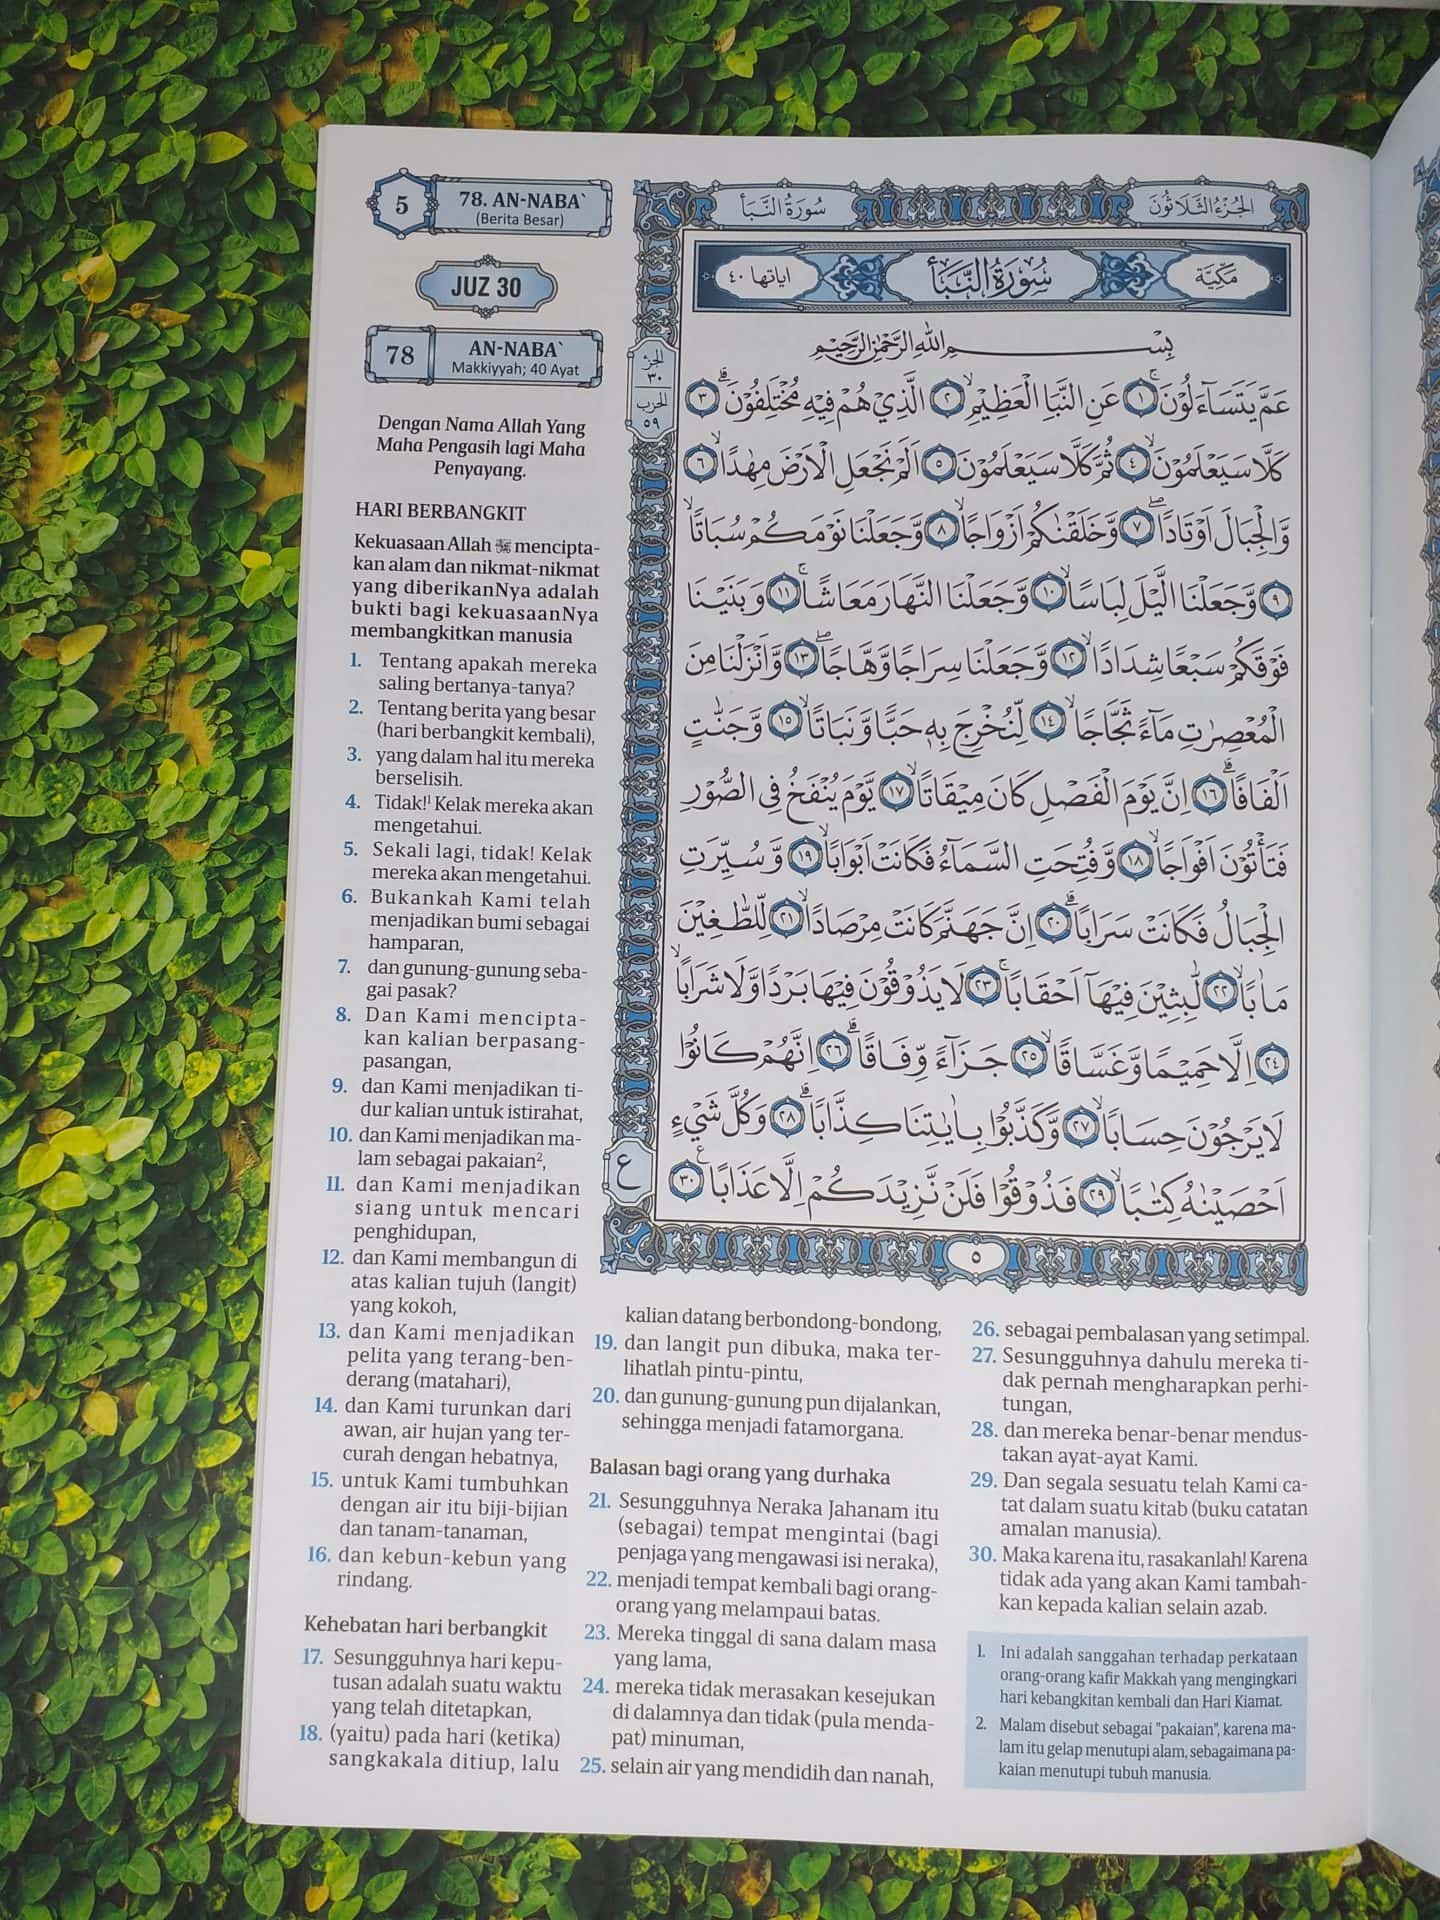 5
78. AN-NABA`
(Berita Besar)
JUZ 30
78
AN-NABA`
Makkiyyah; 40 Ayat
Dengan Nama Allah Yang
Maha Pengasih lagi Maha
Penyayang.
HARI BERBANGKIT
Kekuasaan Allah ﷻ mencipta-
kan alam dan nikmat-nikmat
yang diberikanNya adalah
bukti bagi kekuasaanNya
membangkitkan manusia
1. Tentang apakah mereka
saling bertanya-tanya?
2. Tentang berita yang besar
(hari berbangkit kembali),
3. yang dalam hal itu mereka
berselisih.
4. Tidak!¹ Kelak mereka akan
mengetahui.
5. Sekali lagi, tidak! Kelak
mereka akan mengetahui.
6. Bukankah Kami telah
menjadikan bumi sebagai
hamparan,
7. dan gunung-gunung seba-
gai pasak?
8. Dan Kami mencipta-
kan kalian berpasang-
pasangan,
9. dan Kami menjadikan ti-
dur kalian untuk istirahat,
10. dan Kami menjadikan ma-
lam sebagai pakaian²,
11. dan Kami menjadikan
siang untuk mencari
penghidupan,
12. dan Kami membangun di
atas kalian tujuh (langit)
yang kokoh,
13. dan Kami menjadikan
pelita yang terang-ben-
derang (matahari),
14. dan Kami turunkan dari
awan, air hujan yang ter-
curah dengan hebatnya,
15. untuk Kami tumbuhkan
dengan air itu biji-bijian
dan tanam-tanaman,
16. dan kebun-kebun yang
rindang.
Kehebatan hari berbangkit
17. Sesungguhnya hari kepu-
tusan adalah suatu waktu
yang telah ditetapkan,
18. (yaitu) pada hari (ketika)
sangkakala ditiup, lalu
الجزء الثلاثون
سورة النبأ
مكية
سورة النبأ
اياتها ٤٠
الجزء
٣٠
الحزب
٥٩
بِسْمِ اللهِ الرَّحْمٰنِ الرَّحِيْمِ
عَمَّ يَتَسَاۤءَلُوْنَۚ ١ عَنِ النَّبَاِ الْعَظِيْمِۙ ٢ الَّذِيْ هُمْ فِيْهِ مُخْتَلِفُوْنَۗ ٣
كَلَّا سَيَعْلَمُوْنَۙ ٤ ثُمَّ كَلَّا سَيَعْلَمُوْنَ ٥ اَلَمْ نَجْعَلِ الْاَرْضَ مِهٰدًاۙ ٦
وَّالْجِبَالَ اَوْتَادًاۖ ٧ وَّخَلَقْنٰكُمْ اَزْوَاجًاۙ ٨ وَّجَعَلْنَا نَوْمَكُمْ سُبَاتًاۙ
٩ وَّجَعَلْنَا الَّيْلَ لِبَاسًاۙ ١٠ وَّجَعَلْنَا النَّهَارَ مَعَاشًاۚ ١١ وَبَنَيْنَا
فَوْقَكُمْ سَبْعًا شِدَادًاۙ ١٢ وَّجَعَلْنَا سِرَاجًا وَّهَّاجًاۖ ١٣ وَّاَنْزَلْنَا مِنَ
الْمُعْصِرٰتِ مَاۤءً ثَجَّاجًاۙ ١٤ لِّنُخْرِجَ بِهٖ حَبًّا وَّنَبَاتًاۙ ١٥ وَّجَنّٰتٍ
اَلْفَافًاۗ ١٦ اِنَّ يَوْمَ الْفَصْلِ كَانَ مِيْقَاتًاۙ ١٧ يَّوْمَ يُنْفَخُ فِى الصُّوْرِ
فَتَأْتُوْنَ اَفْوَاجًاۙ ١٨ وَّفُتِحَتِ السَّمَاۤءُ فَكَانَتْ اَبْوَابًاۙ ١٩ وَّسُيِّرَتِ
الْجِبَالُ فَكَانَتْ سَرَابًاۗ ٢٠ اِنَّ جَهَنَّمَ كَانَتْ مِرْصَادًاۙ ٢١ لِّلطّٰغِيْنَ
مَاٰبًاۙ ٢٢ لّٰبِثِيْنَ فِيْهَآ اَحْقَابًاۚ ٢٣ لَا يَذُوْقُوْنَ فِيْهَا بَرْدًا وَّلَا شَرَابًاۙ
٢٤ اِلَّا حَمِيْمًا وَّغَسَّاقًاۙ ٢٥ جَزَاۤءً وِّفَاقًاۗ ٢٦ اِنَّهُمْ كَانُوْا
لَا يَرْجُوْنَ حِسَابًاۙ ٢٧ وَّكَذَّبُوْا بِاٰيٰتِنَا كِذَّابًاۗ ٢٨ وَكُلَّ شَيْءٍ
اَحْصَيْنٰهُ كِتٰبًاۙ ٢٩ فَذُوْقُوْا فَلَنْ نَّزِيْدَكُمْ اِلَّا عَذَابًا ࣖ ٣٠
ع
٥
kalian datang berbondong-bondong,
19. dan langit pun dibuka, maka ter-
lihatlah pintu-pintu,
20. dan gunung-gunung pun dijalankan,
sehingga menjadi fatamorgana.
Balasan bagi orang yang durhaka
21. Sesungguhnya Neraka Jahanam itu
(sebagai) tempat mengintai (bagi
penjaga yang mengawasi isi neraka),
22. menjadi tempat kembali bagi orang-
orang yang melampaui batas.
23. Mereka tinggal di sana dalam masa
yang lama,
24. mereka tidak merasakan kesejukan
di dalamnya dan tidak (pula menda-
pat) minuman,
25. selain air yang mendidih dan nanah,
26. sebagai pembalasan yang setimpal.
27. Sesungguhnya dahulu mereka ti-
dak pernah mengharapkan perhi-
tungan,
28. dan mereka benar-benar mendus-
takan ayat-ayat Kami.
29. Dan segala sesuatu telah Kami ca-
tat dalam suatu kitab (buku catatan
amalan manusia).
30. Maka karena itu, rasakanlah! Karena
tidak ada yang akan Kami tambah-
kan kepada kalian selain azab.
1. Ini adalah sanggahan terhadap perkataan
orang-orang kafir Makkah yang mengingkari
hari kebangkitan kembali dan Hari Kiamat.
2. Malam disebut sebagai "pakaian", karena ma-
lam itu gelap menutupi alam, sebagaimana pa-
kaian menutupi tubuh manusia.